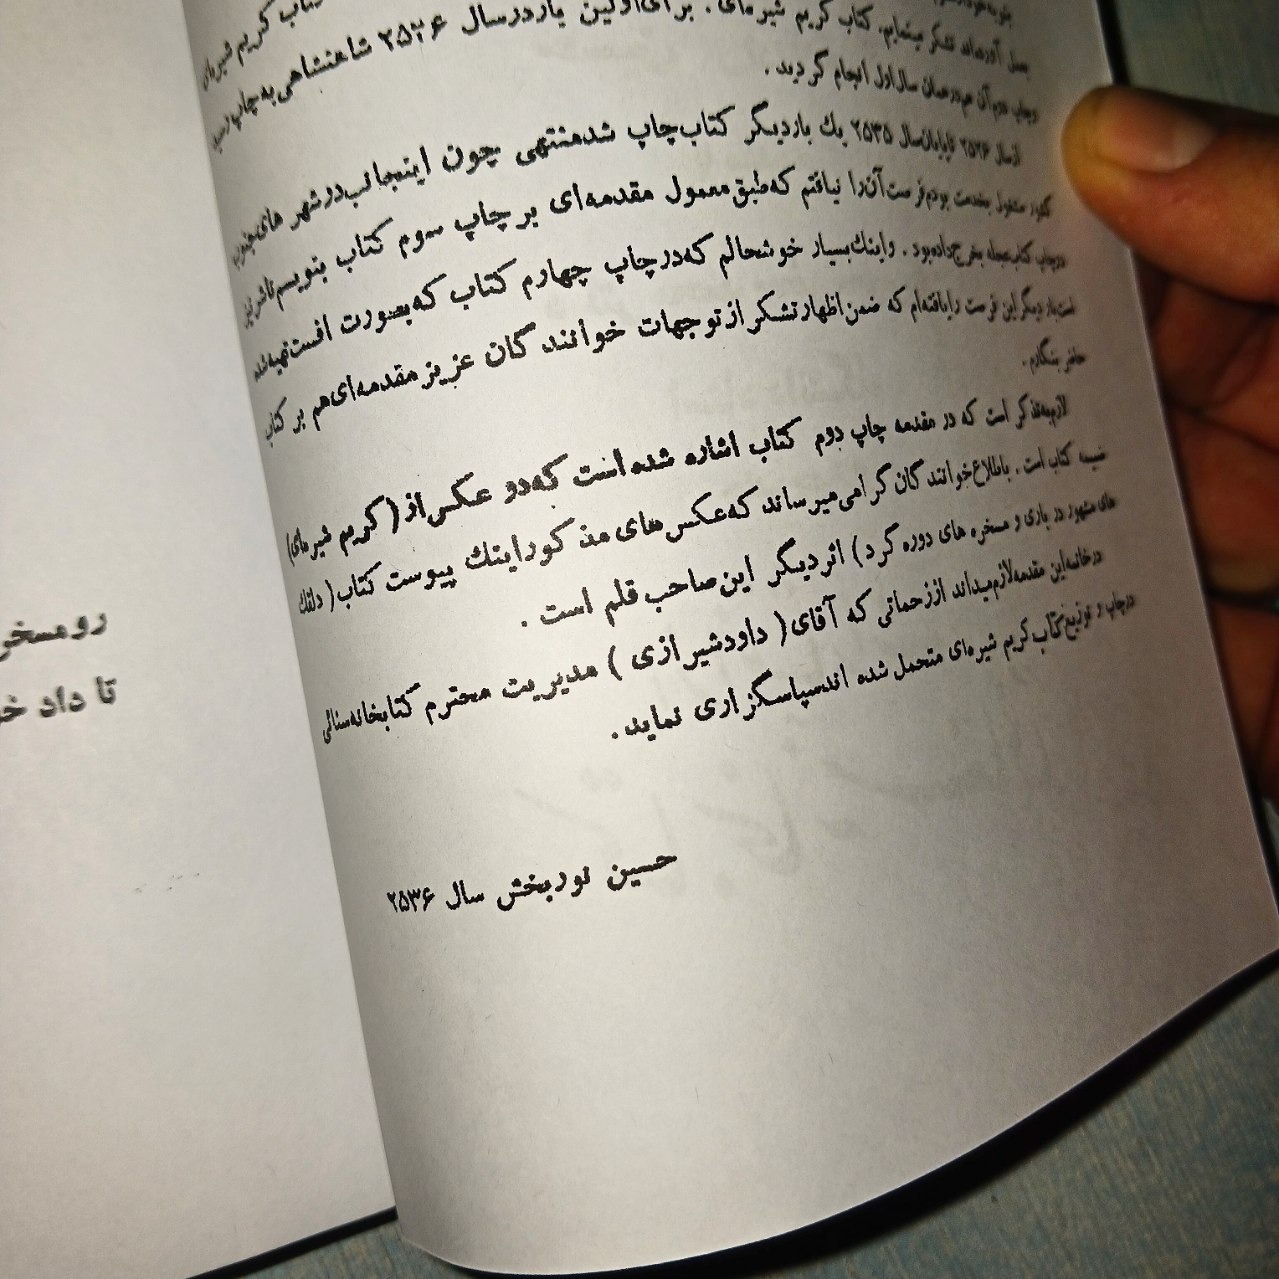 کتاب کریم شیره‌ای
بعمل آورده‌اند تشکر مینمایم. کتاب کریم شیره‌ای. برای اولین بار در سال ۲۵۲۶ شاهنشاهی به چاپ رسید
و چاپ دوم آن هم در همان سال اول انجام گردید.
از سال ۲۵۲۶ تا پایان سال ۲۵۳۵ یک بار دیگر کتاب چاپ شد منتهی چون اینجانب در شهر های جنوب
کشور مشغول بخدمت بودم فرصت آن را نیافتم که طبق معمول مقدمه‌ای بر چاپ سوم کتاب بنویسم ناشر نیز
در چاپ کتاب عجله بخرج داده بود. و اینک بسیار خوشحالم که در چاپ چهارم کتاب که بصورت افست تهیه شده
است بار دیگر این فرصت را یافته‌ام که ضمن اظهار تشکر از توجهات خوانند گان عزیز مقدمه‌ای هم بر کتاب
حاضر بنگارم.
لازم به تذکر است که در مقدمه چاپ دوم کتاب اشاره شده است که دو عکس از (کریم شیره‌ای)
ضمیمه کتاب است. باطلاع خوانند گان گرامی میرساند که عکس‌های مذکور اینک پیوست کتاب (دلقک
های مشهور درباری و مسخره های دوره گرد) اثر دیگر این صاحب قلم است.
در خاتمه این مقدمه لازم میداند از زحماتی که آقای (داود شیرازی) مدیریت محترم کتابخانه سنائی
در چاپ و توزیع کتاب کریم شیره‌ای متحمل شده اند سپاسگزاری نماید.
حسین نوربخش سال ۲۵۳۶
رو مسخر
تا داد